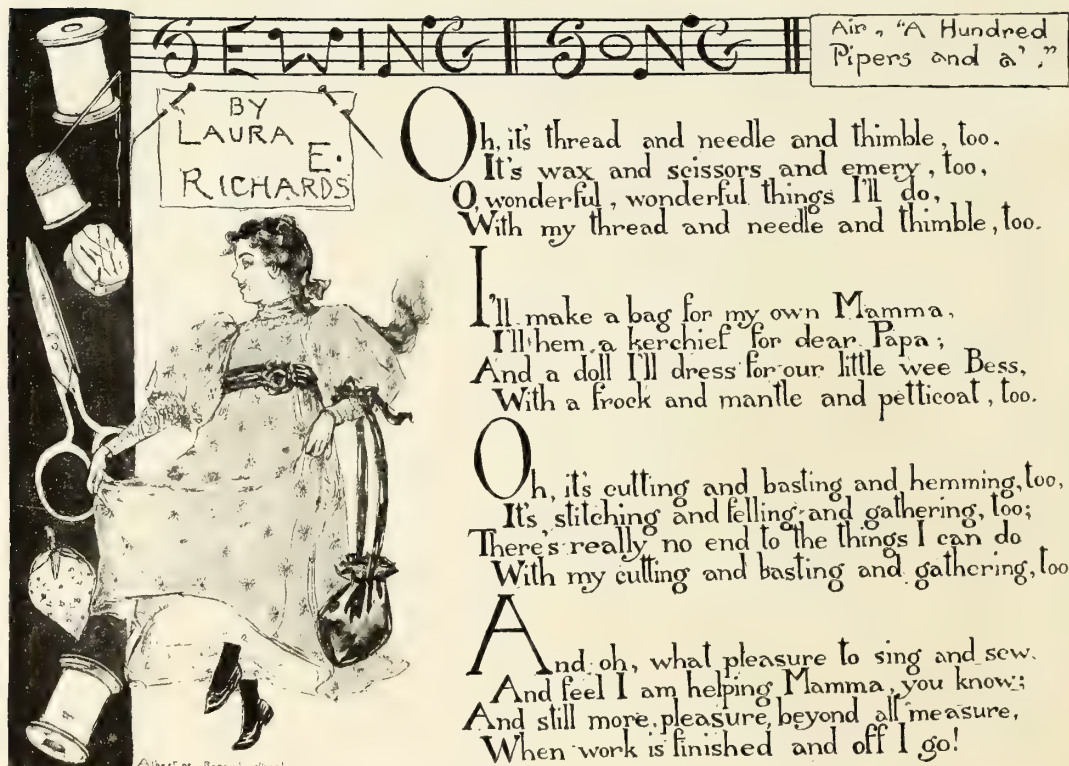 SEWING SONG
Air, "A Hundred
Pipers and a'."
BY
LAURA
E.
RICHARDS
Oh, it's thread and needle and thimble, too.
It's wax and scissors and emery, too,
O, wonderful, wonderful things I'll do,
With my thread and needle and thimble, too.
I'll make a bag for my own Mamma,
I'll hem a kerchief for dear Papa;
And a doll I'll dress for our little wee Bess,
With a frock and mantle and petticoat, too.
Oh, its cutting and basting and hemming, too,
It's stitching and felling and gathering, too;
There's really no end to the things I can do
With my cutting and basting and gathering, too
And oh, what pleasure to sing and sew.
And feel I am helping Mamma, you know;
And still more pleasure, beyond all measure,
When work is finished and off I go!